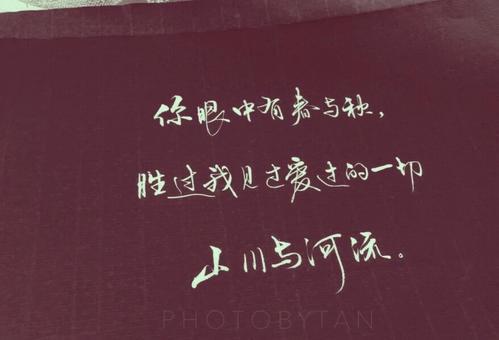 你眼中有春与秋，
胜过我见过爱过的一切
山川与河流。
PHOTOBYTAN